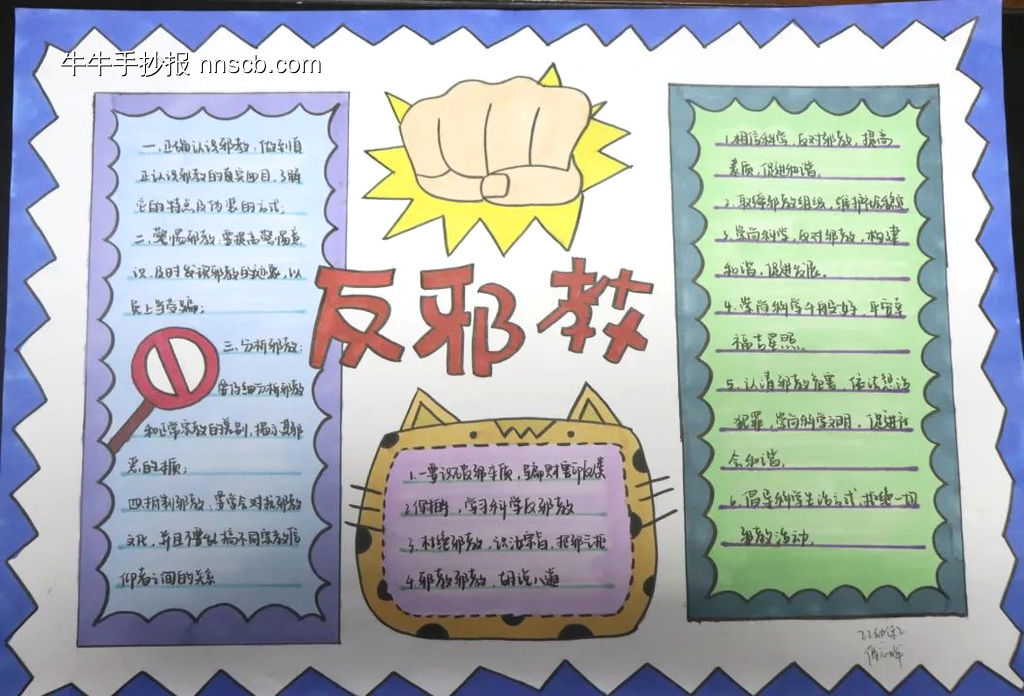 牛牛手抄报 nnscb.com
一.正确认识邪教:做到真
正认识邪教的真实面目,了解
它的特点及伪装的方式;
二.警惕邪教:要提高警惕意
识,及时发现邪教的迹象,以
上当受骗;
三.分析邪教:
要仔细分析邪教
和正常宗教的差别,揭示其邪
恶的本质;
四.抵制邪教:要学会对抗邪教
文化,并且不要搞不同宗教信
仰者之间的关系
反邪教
1.一要识破邪本质,骗财害命
2.保持,学习科学反邪教
3.杜绝邪教
4.邪教邪教,胡说八道
1.相信科学,反对邪教,提高
素质,促进和谐。
2.取缔邪教组织,维护社会稳定
3.崇尚科学,反对邪教,构建
和谐,促进发展。
4.崇尚科学千般好,平安幸
福吉星照。
5.认清邪教危害 依法惩治
犯罪,崇尚科学文明,促进社
会和谐。
6.倡导科学生活方式,拒绝一切
邪教活动。